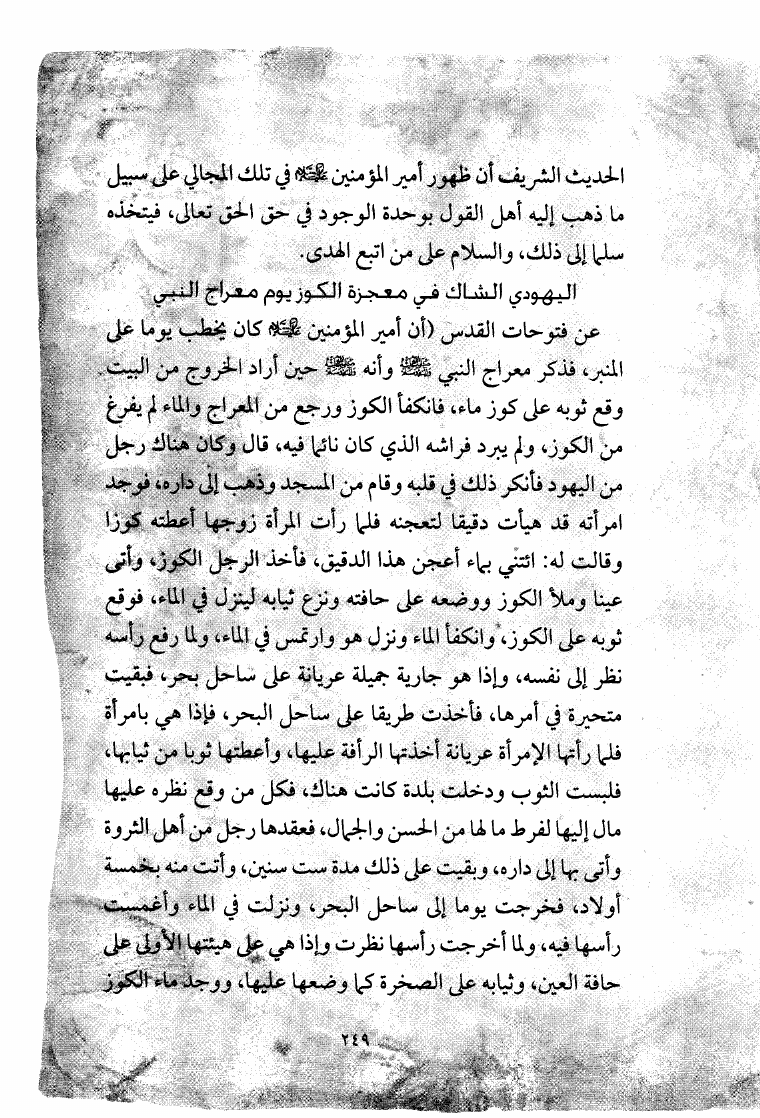 الحديث الشريف أن ظهور أمير المؤمنين عليه السلام في تلك المجالي على سبيل
ما ذهب إليه أهل القول بوحدة الوجود في حق الحق تعالى، فيتخذه
سلما إلى ذلك، والسلام على من اتبع الهدى.
اليهودي الشاك في معجزة الكوز يوم معراج النبي
عن فتوحات القدس (أن أمير المؤمنين عليه السلام كان يخطب يوما على
المنبر، فذكر معراج النبي ﷺ وأنه ﷺ حين أراد الخروج من البيت
وقع ثوبه على كوز ماء، فانكفأ الكوز ورجع من المعراج والماء لم يفرغ
من الكوز، ولم يبرد فراشه الذي كان نائما فيه، قال وكان هناك رجل
من اليهود فأنكر ذلك في قلبه وقام من المسجد وذهب إلى داره، فوجد
امرأته قد هيأت دقيقا لتعجنه فلما رأت المرأة زوجها أعطته كوزا
وقالت له: ائتني بماء أعجن هذا الدقيق، فأخذ الرجل الكوز، وأتى
عينا وملأ الكوز ووضعه على حافته ونزع ثيابه لينزل في الماء، فوقع
ثوبه على الكوز، وانكفأ الماء ونزل هو وارتمس في الماء، ولما رفع رأسه
نظر إلى نفسه، وإذا هو جارية جميلة عريانة على ساحل بحر، فبقيت
متحيرة في أمرها، فأخذت طريقا على ساحل البحر، فإذا هي بامرأة
فلما رأتها الإمرأة عريانة أخذتها الرأفة عليها، وأعطتها ثوبا من ثيابها،
فلبست الثوب ودخلت بلدة كانت هناك، فكل من وقع نظره عليها
مال إليها لفرط ما لها من الحسن والجمال، فعقدها رجل من أهل الثروة
وأتى بها إلى داره، وبقيت على ذلك مدة ست سنين، وأتت منه بخمسة
أولاد، فخرجت يوما إلى ساحل البحر، ونزلت في الماء وأغمست
رأسها فيه، ولما أخرجت رأسها نظرت وإذا هي على هيئتها الأولى على
حافة العين، وثيابه على الصخرة كما وضعها عليها، ووجد ماء الكوز
٢٤٩